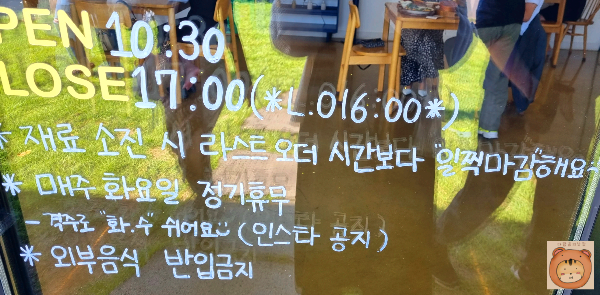 OPEN 10:30
CLOSE 17:00 (*L.O 16:00*)
* 재료 소진 시 라스트 오더 시간보다 "일찍마감"해요*
* 매주 화요일 정기휴무
- 격주로 "화.수" 쉬어요 (인스타 공지)
* 외부음식 반입금지